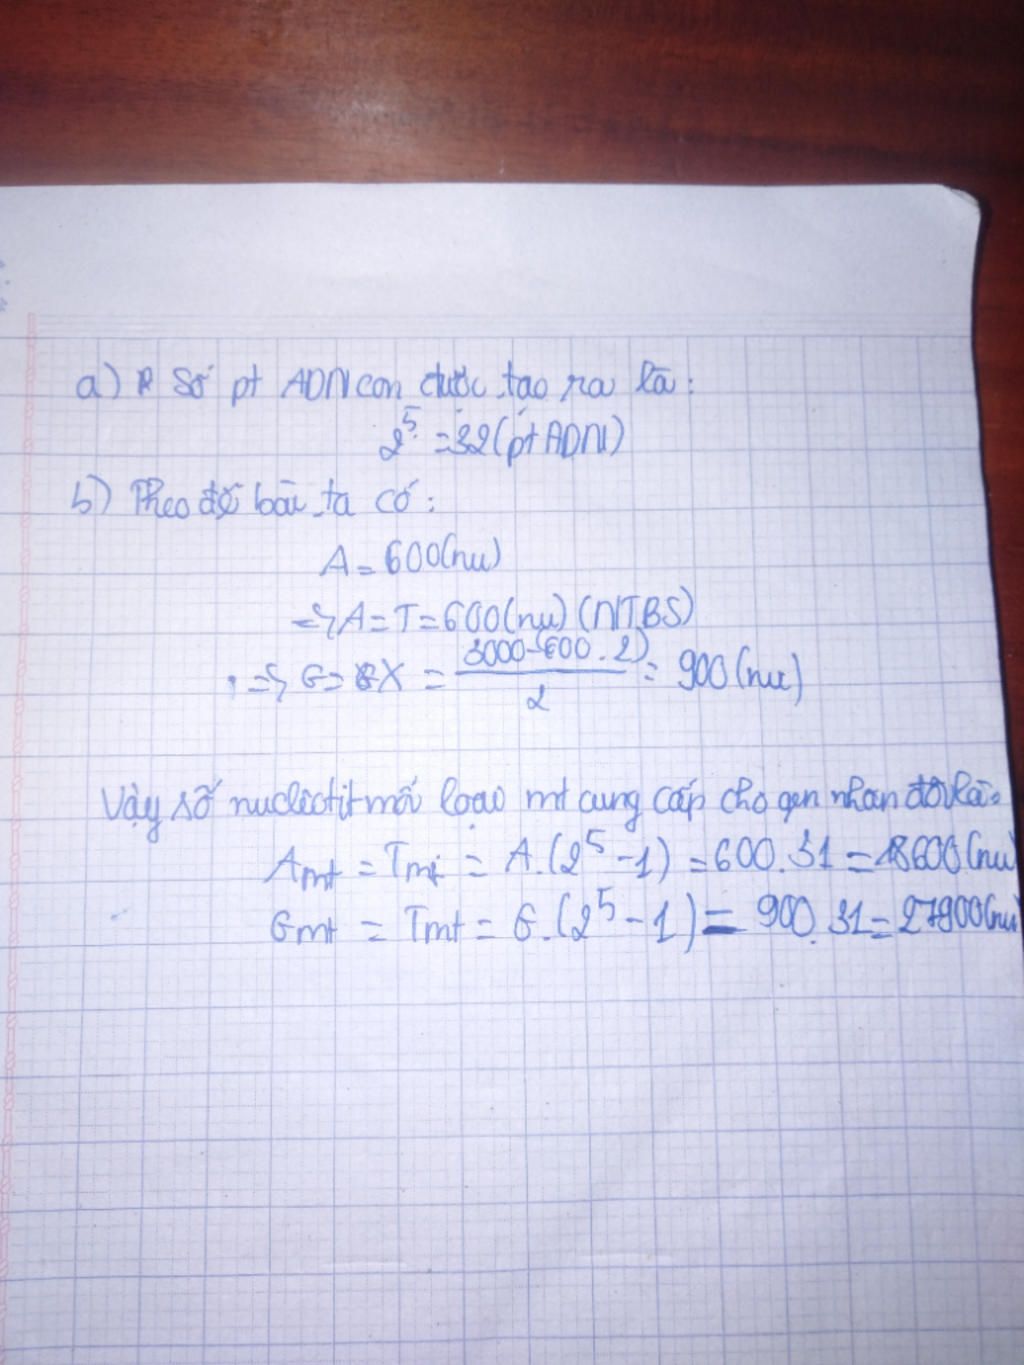 a) Số pt ADN con được tạo ra là:
2^5 = 32 (pt ADN)
b) Theo đề bài ta có:
A = 600 (nu)
=> A = T = 600 (nu) (NTBS)
=> G = X = (3000 - (600 . 2)) / 2 = 900 (nu)
Vậy số nuclêôtit mỗi loại mt cung cấp cho gen nhân đôi là:
Amt = Tmt = A.(2^5 - 1) = 600 . 31 = 18600 (nu)
Gmt = Tmt = G.(2^5 - 1) = 900 . 31 = 27900 (nu)